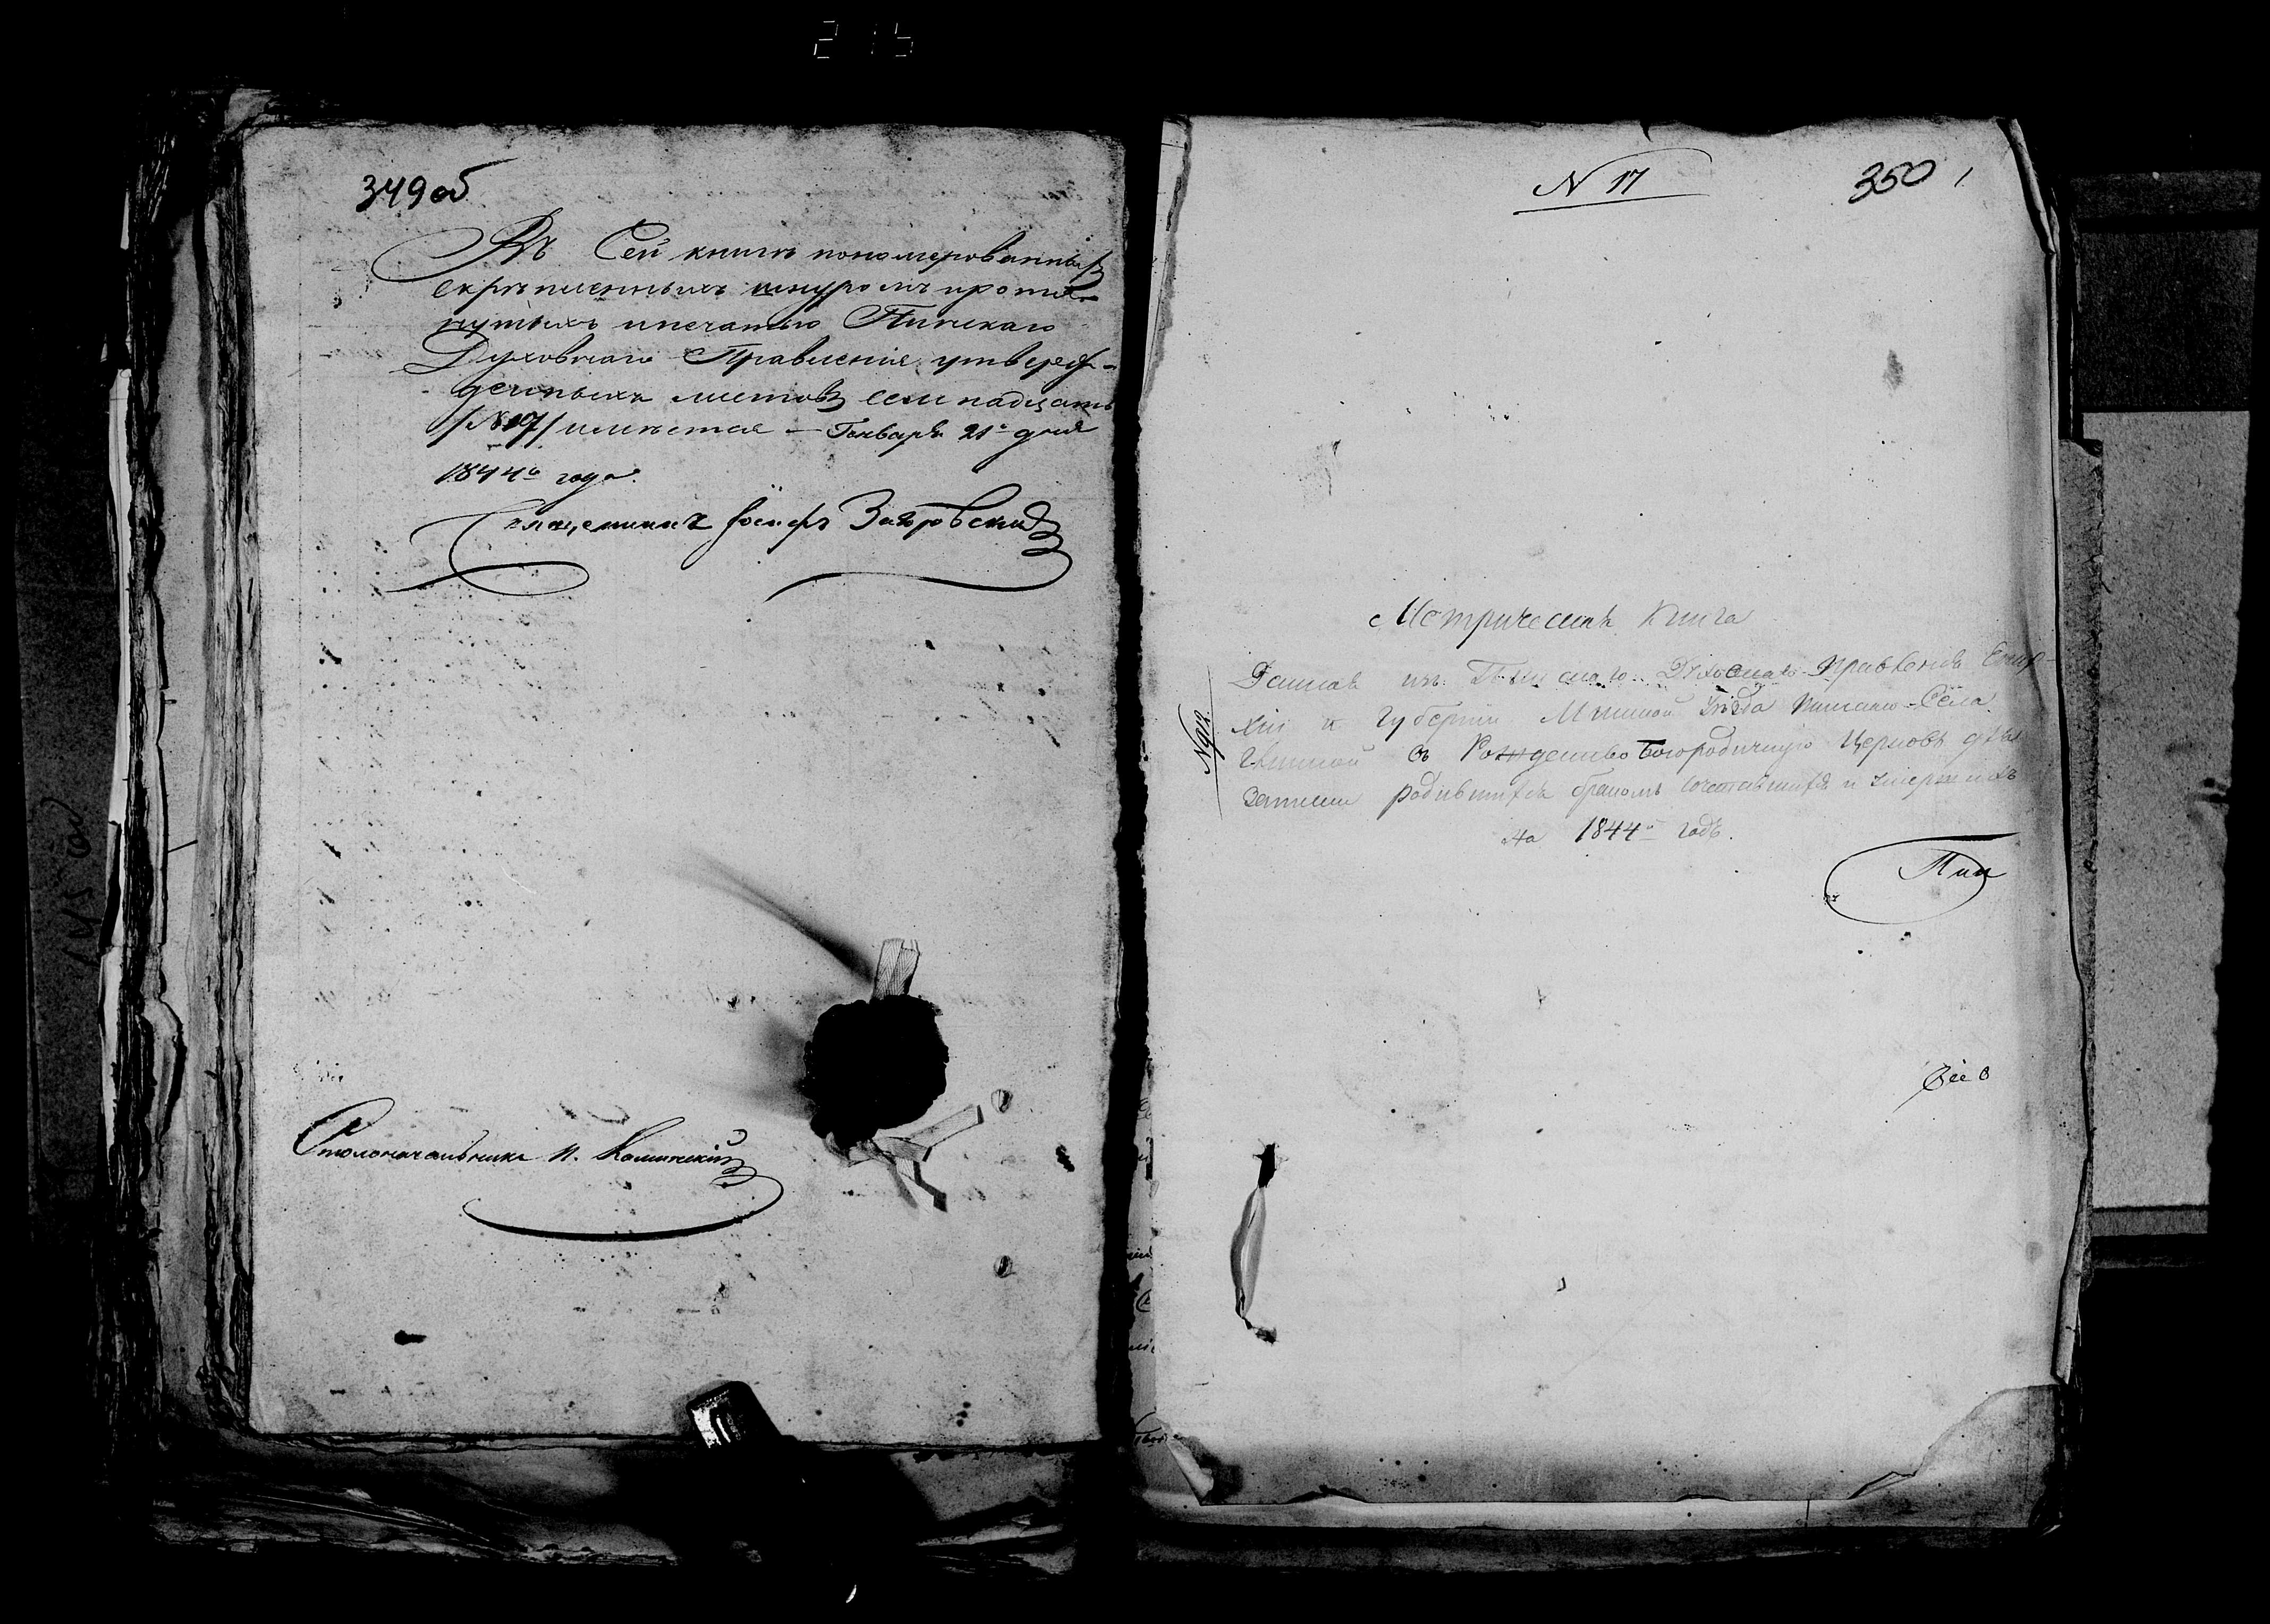 215
349об
Въ Сей книгѣ пономерованныхъ
скрѣпленныхъ шнуромъ протяг-
нутыхъ и печатью Пинскаго
Духовнаго Правленія утверж-
денныхъ листовъ семнадцать
/№ 17/ имѣется — Генваря 21го дня
1844го года.
Священникъ Іосифъ
Столоначальникъ
№ 17
350
1
Метрическая книга
Данная изъ Пинскаго Духовнаго Правленія Епар-
хіи и Губерніи Минской Уѣзда Пинскаго Села
въ Рождество Богородичную Церковь для
записи родившихся бракомъ сочетавшихся и умершихъ
на 1844й годъ.
Пин